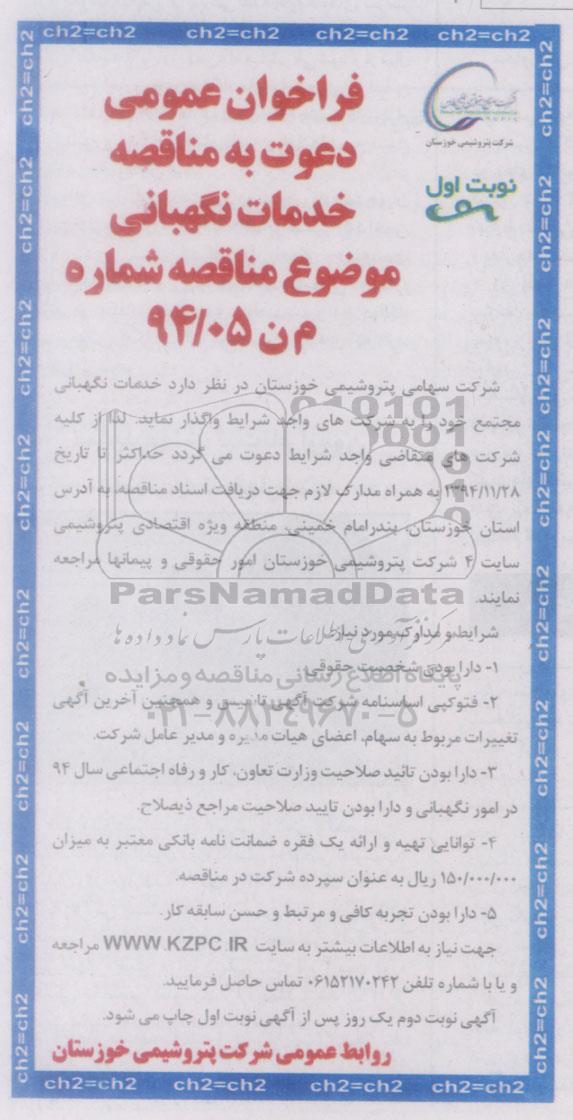 ch2=ch2 ch2=ch2 ch2=ch2 ch2=ch2
شرکت پتروشیمی خوزستان
نوبت اول
فراخوان عمومی
دعوت به مناقصه
خدمات نگهبانی
موضوع مناقصه شماره
م ن ۹۴/۰۵
شرکت سهامی پتروشیمی خوزستان در نظر دارد خدمات نگهبانی
مجتمع خود را به شرکت های واجد شرایط واگذار نماید. لذا از کلیه
شرکت های متقاضی واجد شرایط دعوت می گردد حداکثر تا تاریخ
۱۳۹۴/۱۱/۲۸ به همراه مدارک لازم جهت دریافت اسناد مناقصه، به آدرس
استان خوزستان، بندرامام خمینی، منطقه ویژه اقتصادی پتروشیمی
سایت ۴ شرکت پتروشیمی خوزستان امور حقوقی و پیمانها مراجعه
نمایند.
ParsNamadData
مرکز فرآوری اطلاعات پارس نماد داده ها
شرایط و مدارک مورد نیاز:
۱- دارا بودن شخصیت حقوقی.
پایگاه اطلاع رسانی مناقصه و مزایده
۲- فتوکپی اساسنامه شرکت آگهی تاسیس و همچنین آخرین آگهی
۰۲۱-۸۸۳۴۹۶۷۰-۵
تغییرات مربوط به سهام، اعضای هیات مدیره و مدیر عامل شرکت.
۳- دارا بودن تائید صلاحیت وزارت تعاون، کار و رفاه اجتماعی سال ۹۴
در امور نگهبانی و دارا بودن تایید صلاحیت مراجع ذیصلاح.
۴- توانایی تهیه و ارائه یک فقره ضمانت نامه بانکی معتبر به میزان
۱۵۰/۰۰۰/۰۰۰ ریال به عنوان سپرده شرکت در مناقصه.
۵- دارا بودن تجربه کافی و مرتبط و حسن سابقه کار.
جهت نیاز به اطلاعات بیشتر به سایت WWW.KZPC IR مراجعه
و یا با شماره تلفن ۰۶۱۵۲۱۷۰۲۴۲ تماس حاصل فرمایید.
آگهی نوبت دوم یک روز پس از آگهی نوبت اول چاپ می شود.
روابط عمومی شرکت پتروشیمی خوزستان
ch2=ch2 ch2=ch2 ch2=ch2 ch2=ch2